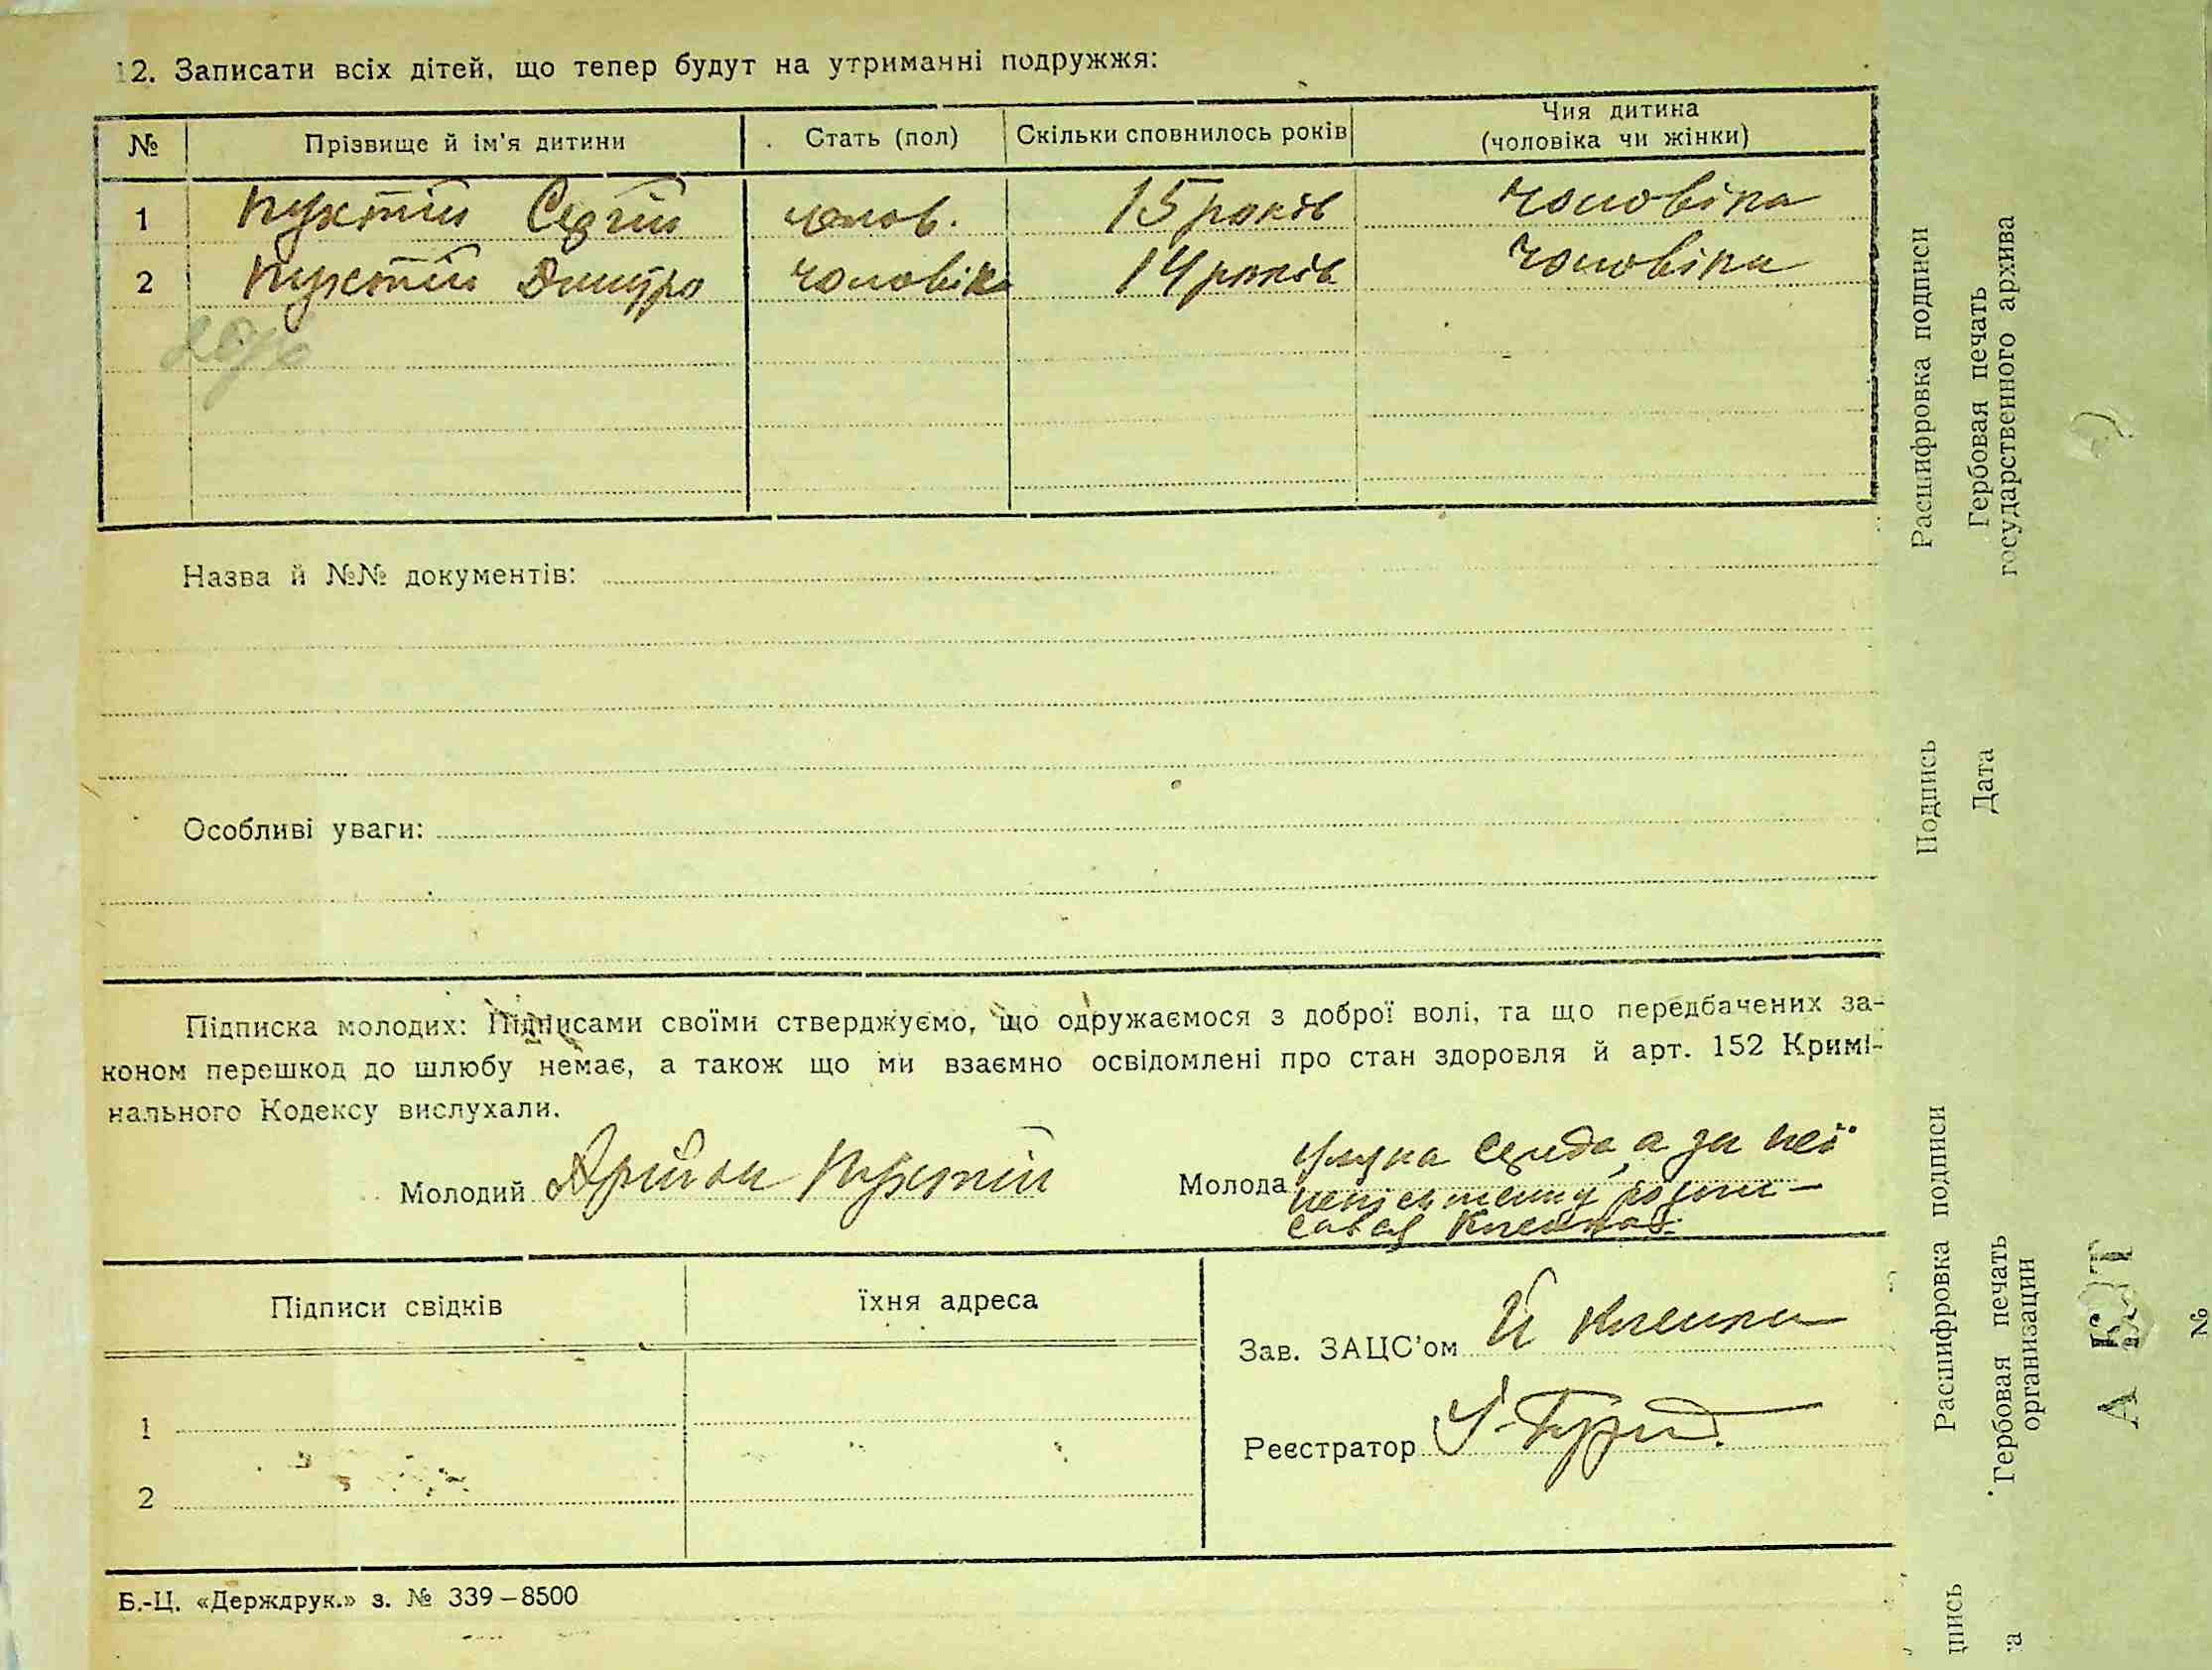 12. Записати всіх дітей, що тепер будут на утриманні подружжя:
№ Прізвище й ім'я дитини Стать (пол) Скільки сповнилось років Чия дитина (чоловіка чи жінки)
1 Пустій Сергій чолов. 15 років чоловіка
2 Пустій Дмитро чоловіка 14 років чоловіка
Назва й №№ документів:
Особливі уваги:
Підписка молодих: Підписами своїми стверджуємо, що одружаємося з доброї волі, та що передбачених за-
коном перешкод до шлюбу немає, а також що ми взаємно освідомлені про стан здоровля й арт. 152 Кримі-
нального Кодексу вислухали.
Молодий Пустій
Молода Середа, а за неї
неписьменну розпи-
сався
Підписи свідків їхня адреса
Зав. ЗАЦС'ом
Реєстратор
1
2
Б.-Ц. «Держдрук.» з. № 339–8500
Расшифровка подписи
Гербовая печать
государственного архива
Подпись
Дата
Расшифровка подписи
Гербовая печать
организации
АКТ
№